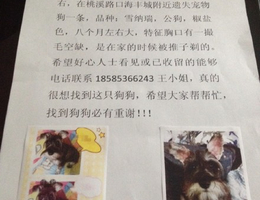 右，在桃溪路口海丰城附近遗失宠物
狗一条，品种：雪纳瑞，公狗，椒盐
色，八个月左右大，特征胸口有一撮
毛空缺，是在家的时候被推子剃的。
希望好心人士看见或已收留的能够
电话联系 18585366243 王小姐，真的
很想找到这只狗狗，希望大家帮帮忙，
找到狗狗必有重谢!!!